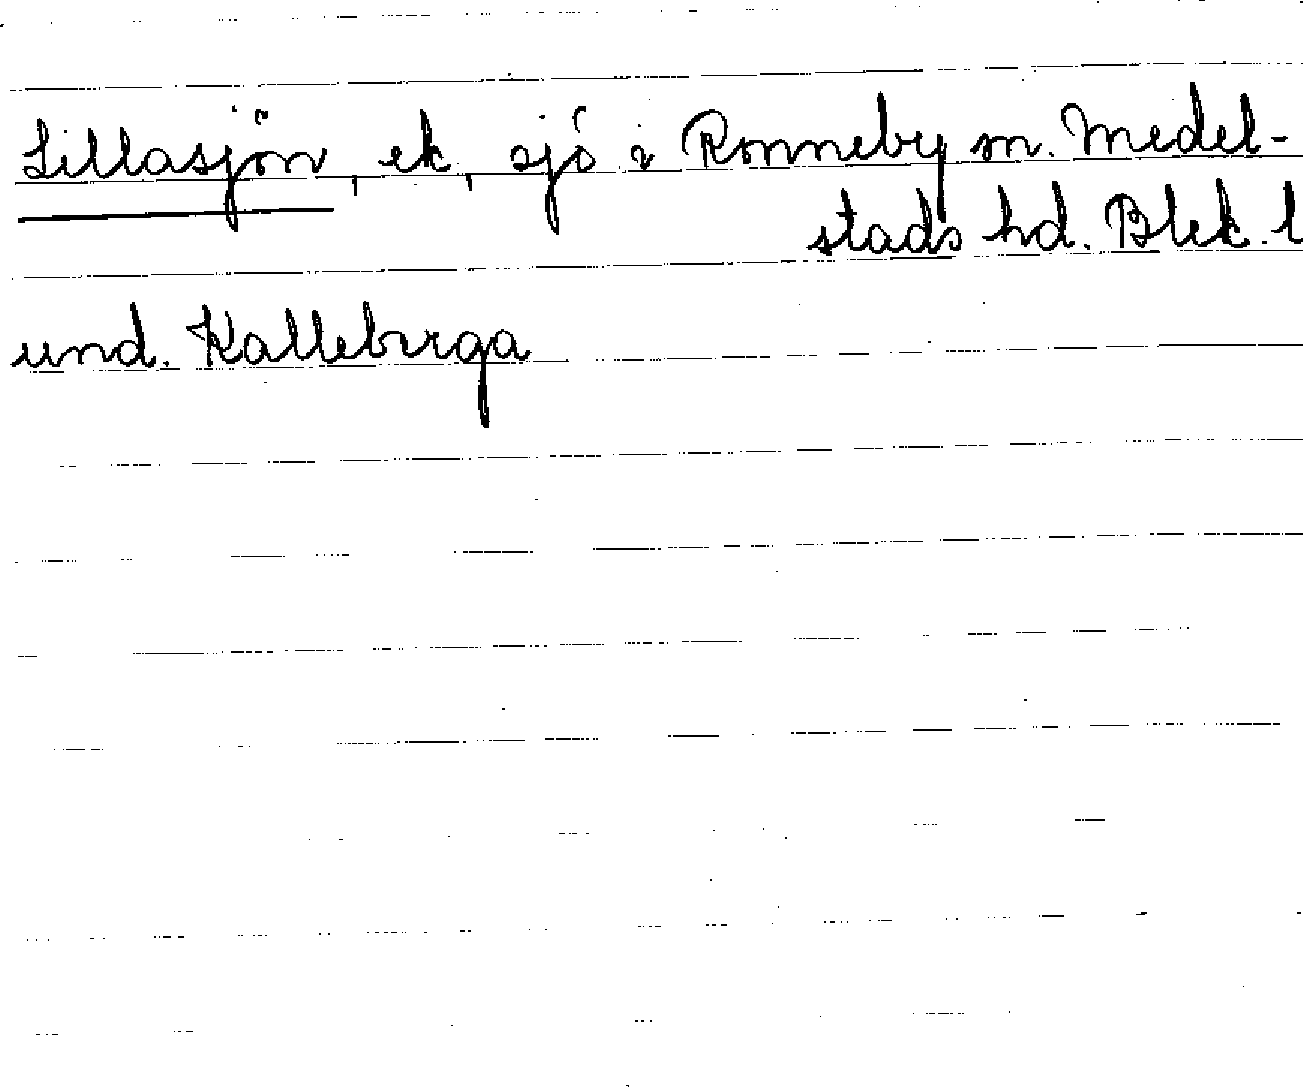 Lillasjön, ek, sjö i Ronneby sn. Medel-
stads hd. Blek. l
und. Kalleberga